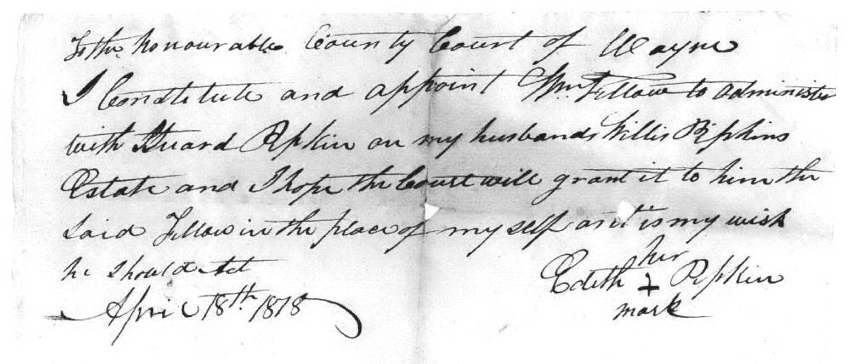 To the honourable County Court of Wayne
I Constitute and appoint Wm. Fellow to administer
with Stuard Pipkin on my husbands Willis Pipkins
Estate and I hope the Court will grant it to him the
Said Fellow in the place of my self as it is my wish
he Should Act
April 18th. 1818
her
Edith + Pipkin
mark